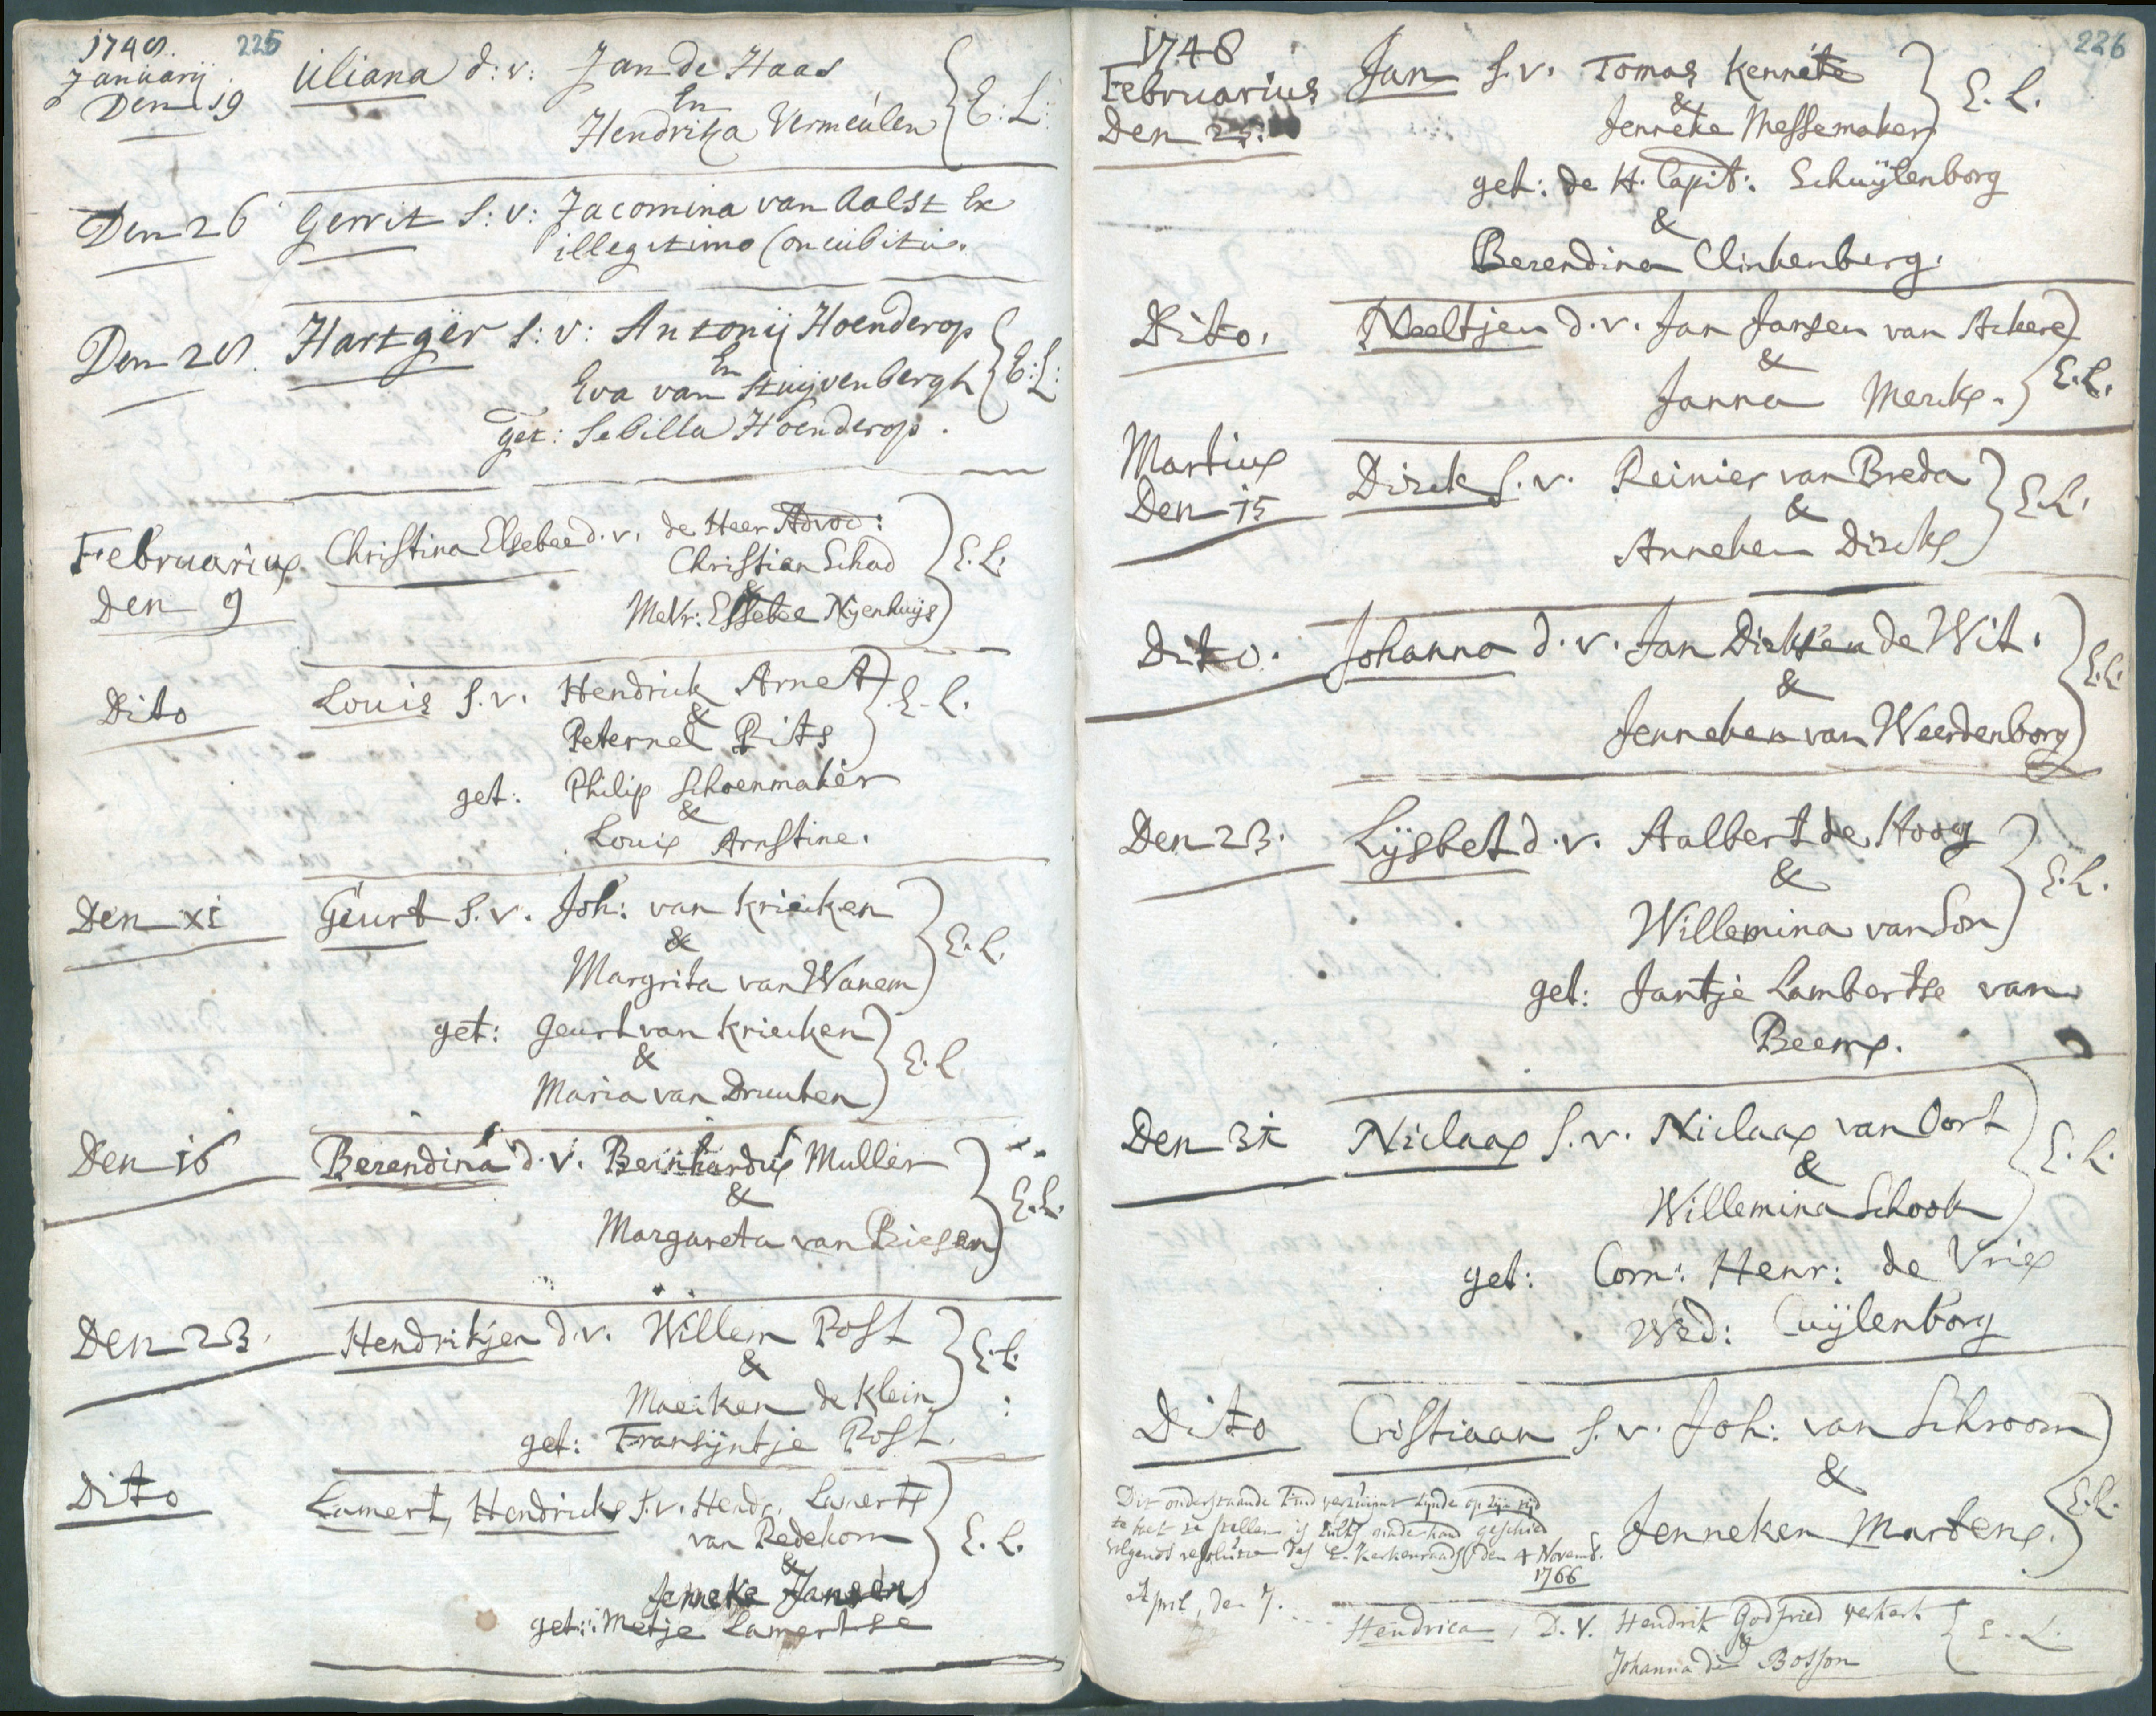 1748. 225
Januarij
Den 19 Uliana d: v: Jan de Haas
En
Hendrika Vermeulen E: L:
Den 26 Gerrit S: v: Jacomina van Aalst Ex
illegitimo Concubitu.
Den 28. Hartger S: v: Antonij Hoenderop
En
Eva van Stuijvenbergh E: L:
get: Sebilla Hoenderop.
Februarius
Den 9 Christina Elsebee d. v. de Heer Advoc:
Christian Schad
&
Mevr: Elsebee Nyenhuijs E. L.
Dito Louis S. v. Hendrick Arnet
&
Peternel Pits E. L.
get: Philip Schoenmaker
&
Louis Arnstine.
Den xi Geurt S. v. Joh: van Kriecken
&
Margrita van Wanem E. L.
get: Geurt van Kriecken
&
Maria van Druuten E. L
Den 16 Berendina d. v. Bernhardus Muller
&
Margareta van Biesen E. L.
Den 23. Hendrikjen d. v. Willem Post
&
Maeiken de Klein E. L.
get: Fransijntje Post.
Dito Lamert, Hendricks S. v. Hend. Lamerts
van Redekom
&
Jenneke Jansen E. L.
get: Metje Lamertse
1748 226
Februarius
Den 25. Jan S. v. Tomas Kennete
&
Jenneke Messemaker E. L.
get: de H. Capit: Schuijlenborg
&
Berendina Clinkenberg.
Dito. Neeltjen d. v. Jan Jansen van Ackere
&
Janna Merks. E. L.
Martius
Den 15 Dirck S. v. Reinier van Breda
&
Anneken Dircks E. L.
Dito. Johanna d. v. Jan Dicksen de Wit.
&
Jenneken van Weerdenborg E. L.
Den 23. Lijsbet d. v. Aalbert de Hoog
&
Willemina van Son E. L.
get: Jantje Lambertse van
Beems.
Den 31 Niclaas S. v. Niclaas van Oort
&
Willemina Schook E. L.
get: Corn: Henr: de Vries
Wed: Cuijlenborg
Dito Cristiaan S. v. Joh: van Schroom
&
Jenneken Martens. E. L.
Dit onderstaande kind verzuimt zynde op zijn tijd
te boek te stellen is zulks naderhand geschied
volgens resolutie des E. Kerkenraads den 4 Novemb.
1766
April, den 7. Hendrica, D. V. Hendrik Godfried Verkerk
&
Johanna de Bosson E. L.